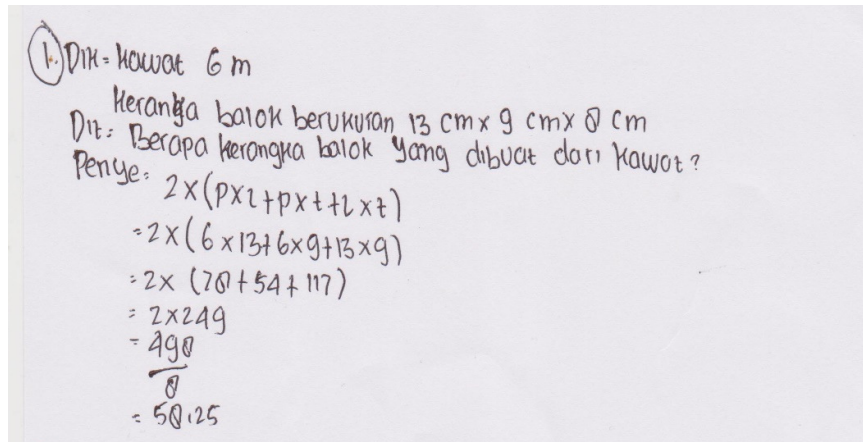 1. Dik = Kawat 6 m
Kerangka balok berukuran 13 cm x 9 cm x 8 cm
Dit = Berapa kerangka balok yang dibuat dari kawat?
Penye =
2x(pxl+pxt+lxt)
=2x(6x13+6x9+13x9)
=2x (78+54+117)
= 2x249
= 498
8
= 58,25